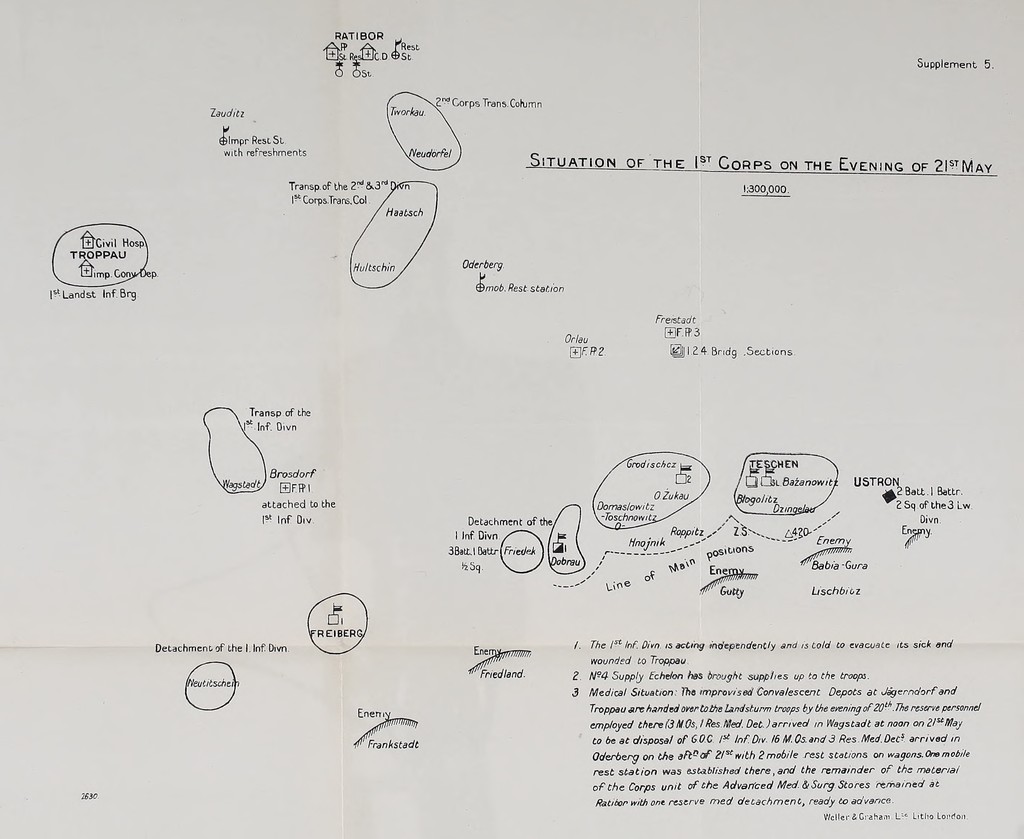 Supplement 5.
RATIBOR
St. Res. C.D.
Rest
St
St.
Zauditz
Impr Rest St.
with refreshments
2nd Corps Trans. Column
Tworkau.
Neudorfel
SITUATION OF THE 1ST CORPS ON THE EVENING OF 21ST MAY
1:300,000.
Transp. of the 2nd & 3rd Divn
1st Corps. Trans. Col
Haatsch
Hultschin
Civil Hosp
TROPPAU
imp. Conv. Dep.
1st Landst Inf. Brg
Oderberg.
mob. Rest station
Freistadt
F.P. 3
1.2.4. Bridg. Sections
Orlau
F.P. 2.
Transp of the
1st Inf. Divn
Wagstadt
Brosdorf
F.P. 1
attached to the
1st Inf Div.
Grodischcz
2
O Żukau
Domaslowitz
-Toschnowitz
TESCHEN
SL Bażanowitz
Blogolitz
Dzingelau
USTRON
2 Batt. 1 Battr.
2 Sq of the 3 Lw
Divn.
Enemy.
Detachment of the
1 Inf. Divn
3 Batt. 1 Battr
½ Sq.
Friedek
1
Dobrau
Hnojnik
Roppitz
Z S.
△420
Line of Main positions
Enemy
Babia-Gura
Enemy
Gutty
Lischbitz
1
FREIBERG
Detachment of the 1. Inf. Divn.
Neutitschein
Enemy
Friedland.
Enemy
Frankstadt
1. The 1st Inf. Divn is acting independently and is told to evacuate its sick and
wounded to Troppau.
2 No 4 Supply Echelon has brought supplies up to the troops.
3 Medical Situation: The improvised Convalescent Depots at Jägerndorf and
Troppau are handed over to the Landsturm troops by the evening of 20th. The reserve personnel
employed there (3 M.Os, 1 Res. Med. Det.) arrived in Wagstadt at noon on 21st May
to be at disposal of G.O.C. 1st Inf. Div. 16 M.Os. and 3 Res. Med. Dets. arrived in
Oderberg on the aftn of 21st with 2 mobile rest stations on wagons. One mobile
rest station was established there, and the remainder of the material
of the Corps unit of the Advanced Med. & Surg. Stores remained at
Ratibor with one reserve med detachment, ready to advance.
Weller & Graham. Ltd. Litho London.
2630